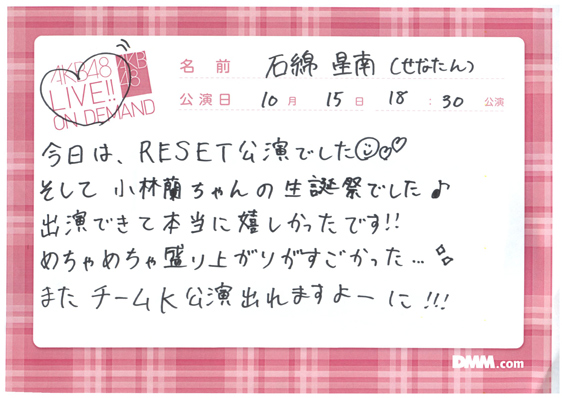 AKB48
LIVE!!
ON DEMAND
AKB
48
名前 石綿 星南 (せなたん)
公演日 10月 15日 18:30 公演
今日は、RESET公演でした
そして 小林蘭ちゃんの生誕祭でした♪
出演できて本当に嬉しかったです!!
めちゃめちゃ盛り上がりがすごかった…
また チームK公演出れますよーに!!!
DMM.com